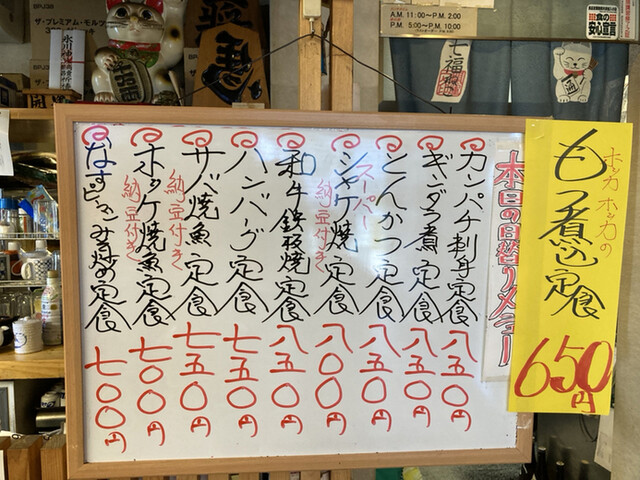 ホッカホッカの
もつ煮込定食
650円
本日の日替りメニュー
カンパチ刺身定食 八五〇円
ギンダラ煮定食 八〇〇円
とんかつ定食 八五〇円
スーパー
シャケ焼定食 八〇〇円
納豆付き
和牛鉄板焼定食 八五〇円
ハンバーグ定食 七五〇円
サバ焼魚定食 七五〇円
納豆付き
ホッケ焼魚定食 七〇〇円
納豆付き
なすピーマンみそ炒め定食 七〇〇円
A.M. 11:00〜P.M. 2:00
P.M. 5:00〜P.M. 10:00
ザ・プレミアム・モルツ
七福
食の
安心宣言